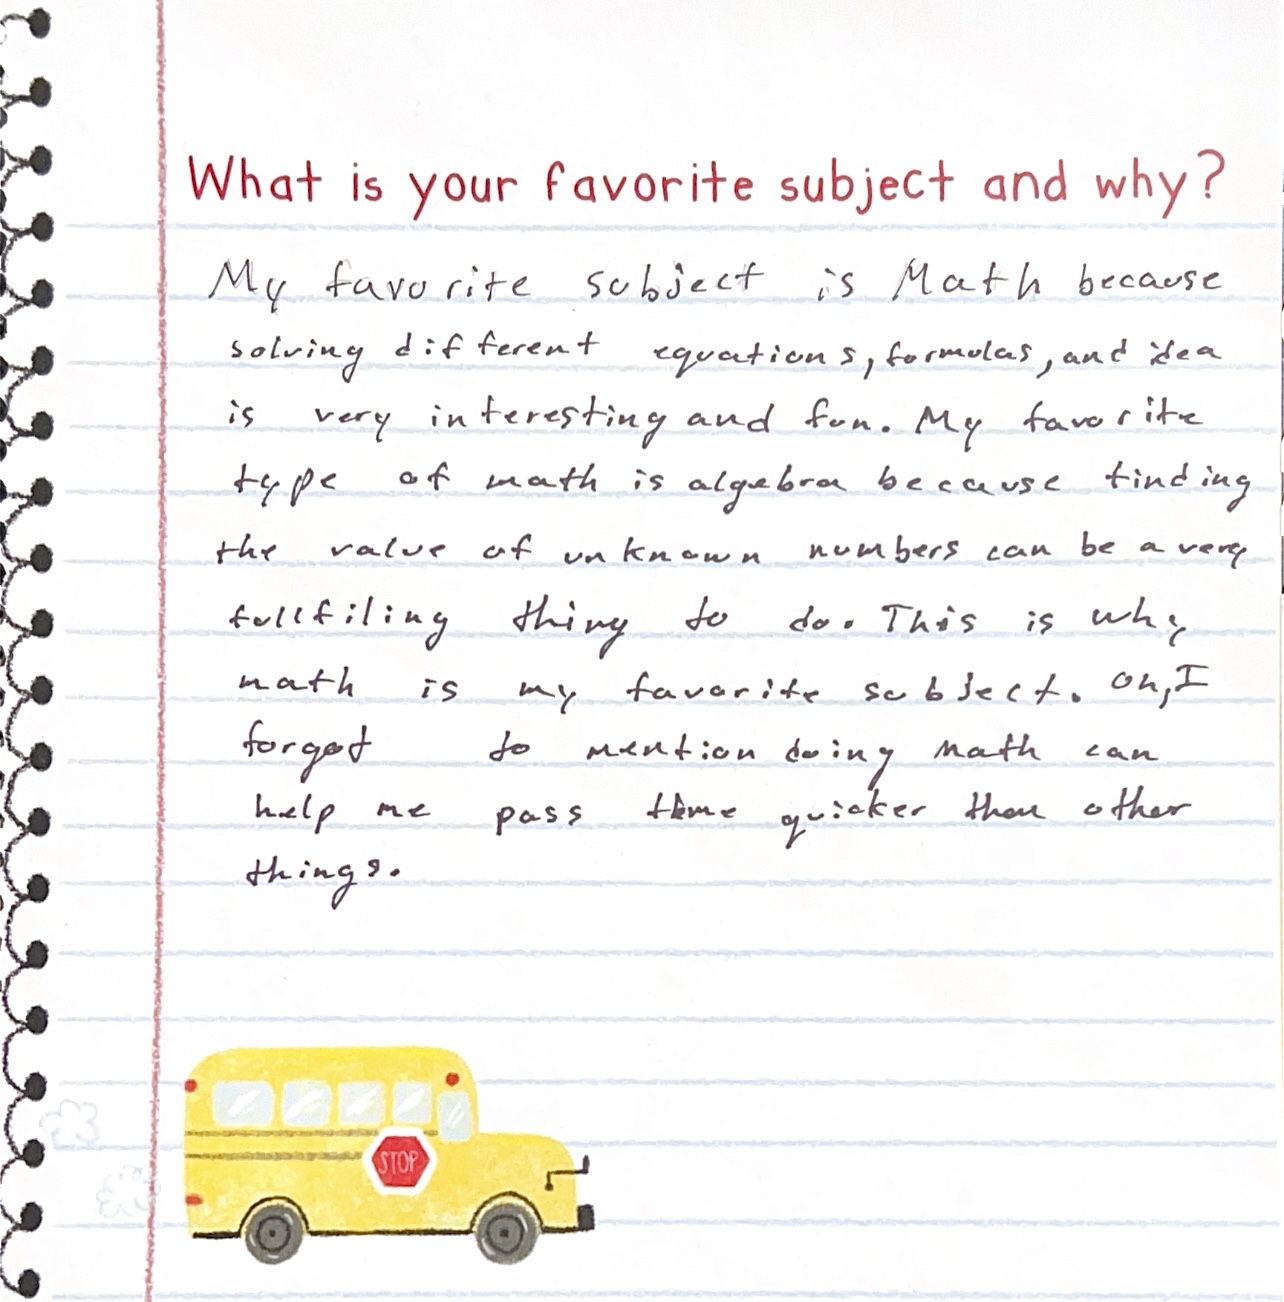 What is your favorite subject and why?
My favorite subject is Math because
solving different equations, formulas, and idea
is very interesting and fun. My favorite
type of math is algebra because finding
the value of unknown numbers can be a very
fullfiling thing to do. This is why
math is my favorite subject. Oh, I
forgot to mention doing math can
help me pass time quicker than other
things.
STOP